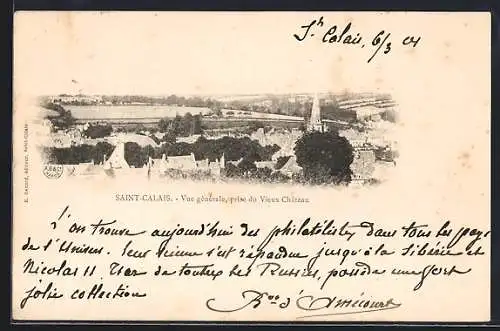 St Calais, 6/3 04
SAINT-CALAIS. - Vue générale, prise du Vieux Château
L'on trouve aujourd'hui des philatélistes dans tous les pays
de l'Univers. Leur science s'est répandue jusqu'à la Sibérie et
Nicolas II Tzar de toutes les Russies, possède une fort
jolie collection
Bon d'Amécourt